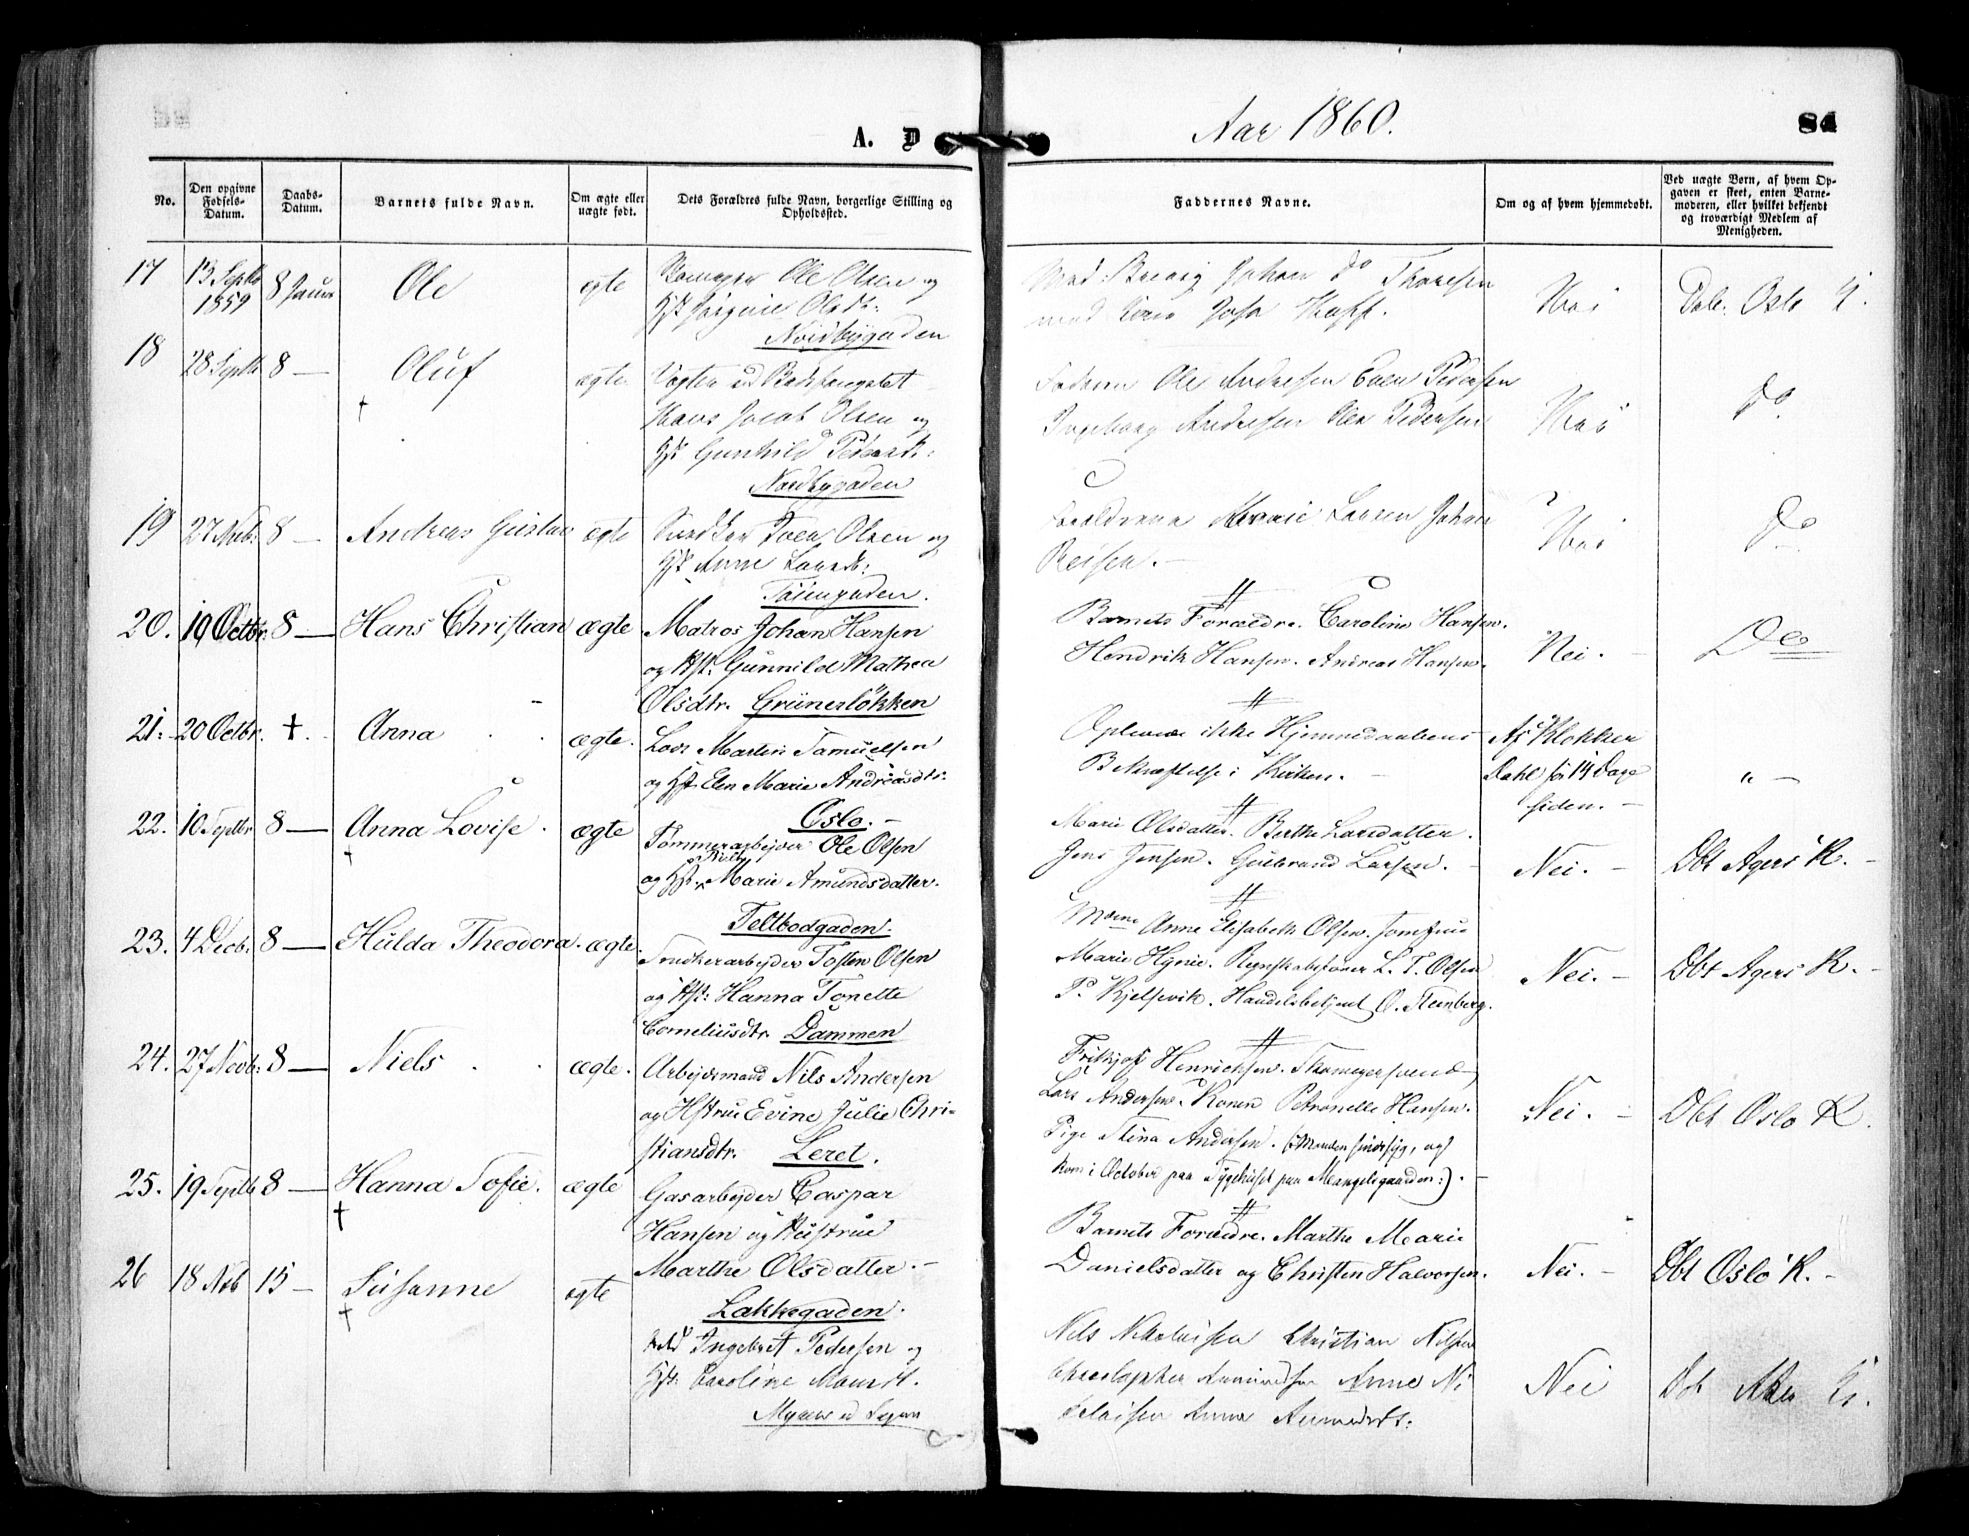 A. D
Aar 1860.
84
No.
Den opgivne Fødsels-Datum.
Daabs-Datum.
Barnets fulde Navn.
Om ægte eller uægte født.
Dets Forældres fulde Navn, borgerlige Stilling og Opholdssted.
Faddernes Navne.
Om og af hvem hjemmedøbt.
Ved uægte Børn, af hvem Opgaven er skeet, enten Barnemoderen, eller hvilket bekjendt og troværdigt Medlem af Menigheden.
17 13 Septbr 1859 8 Januar Ole ægte
Ole Olsen og
Olsdtr:
Nordbygaden
Johan Thoresen
Nei
Døbt Oslo K.
18 28 Septbr 8 — Oluf ægte
†
Hans Jacob Olsen og
Hst Gunhild Pedersdtr:
Nordbygaden
Faderen Ole Andresen Pedersen
Ingeborg Andresen Pedersen
Nei
Do
19 27 Novbr: 8 — Andreas Gustav ægte
Olsen og
Hst Anne Larsdtr:
Tøiengaden.
Forældrene Larsen Johan
Nei
Do
20. 19 Octbr. 8 — Hans Christian ægte
Matros Johan Hansen
og Hst. Gunnilde Mathea
Olsdtr. Grünerløkken
Barnets Forældre. Caroline Hansen.
Hendrik Hansen. Andreas Hansen.
Nei.
Do
21. 20 Octbr. †. Anna ægte.
Lods Martin Samuelsen
og Hst. Elen Marie Andreasdtr.
Oslo. —
Oplevede ikke Hjemmedaabens
Bekræftelse i Kirken. —
Af Klokker
Dahl for 14 Dage
siden. —
" —
22. 10 Septbr 8 — Anna Lovise. ægte
†
Tømmerarbejder Ole Olsen
og Hst. Marie Amundsdatter.
Teltbodgaden.
Marie Olsdatter. Berthe Larsdatter.
Jens Jensen. Gulbrand Larsen. —
Nei. —
Dbt Agers K. —
23. 4 Decbr. 8 — Hulda Theodora. ægte.
Snedkerarbejder Tosten Olsen
og Hst: Hanna Tonette
Corneliusdtr. Dammen
Anne Elisabeth Olsen. Jomfrue
Marie Hynie. Regnskabsfører L. T. Olsen
P. Kjelsevik. Handelsbetjent O. Stenberg.
Nei. —
Dbt Agers K. —
24. 27 Novbr: 8 — Niels ægte.
Arbejdsmand Nils Andersen
og Hstrue Evine Julie Chri-
stiansdtr. Leret.
Frithjof Henrichsen. Skomagersvend
Lars Andersen. Konen Petronelle Hansen.
Pige Stina Andersen. (: Manden sindssyg, og
kom i October paa Sygehuset paa Mangelsgaarden:). —
Nei. —
Dbt Oslo K.
25. 19 Septbr 8 — Hanna Sofie. ægte
†
Gasarbejder Caspar
Hansen og Hustrue
Marthe Olsdatter. —
Lakkegaden.
Barnets Forældre. Marthe Marie
Danielsdatter og Christen Halvorsen.
Nei. —
Dbt Oslo K. —
26 18 Nob 15 — Susanne ægte
†
Ingebret Pedersen og
Hst: Caroline
Nils Nikolaisen Christian Nilsen
Christopher Amundsen Anne Ni
kolaisen Anne Amundsdtr:
Nei
Dbt Aker K.